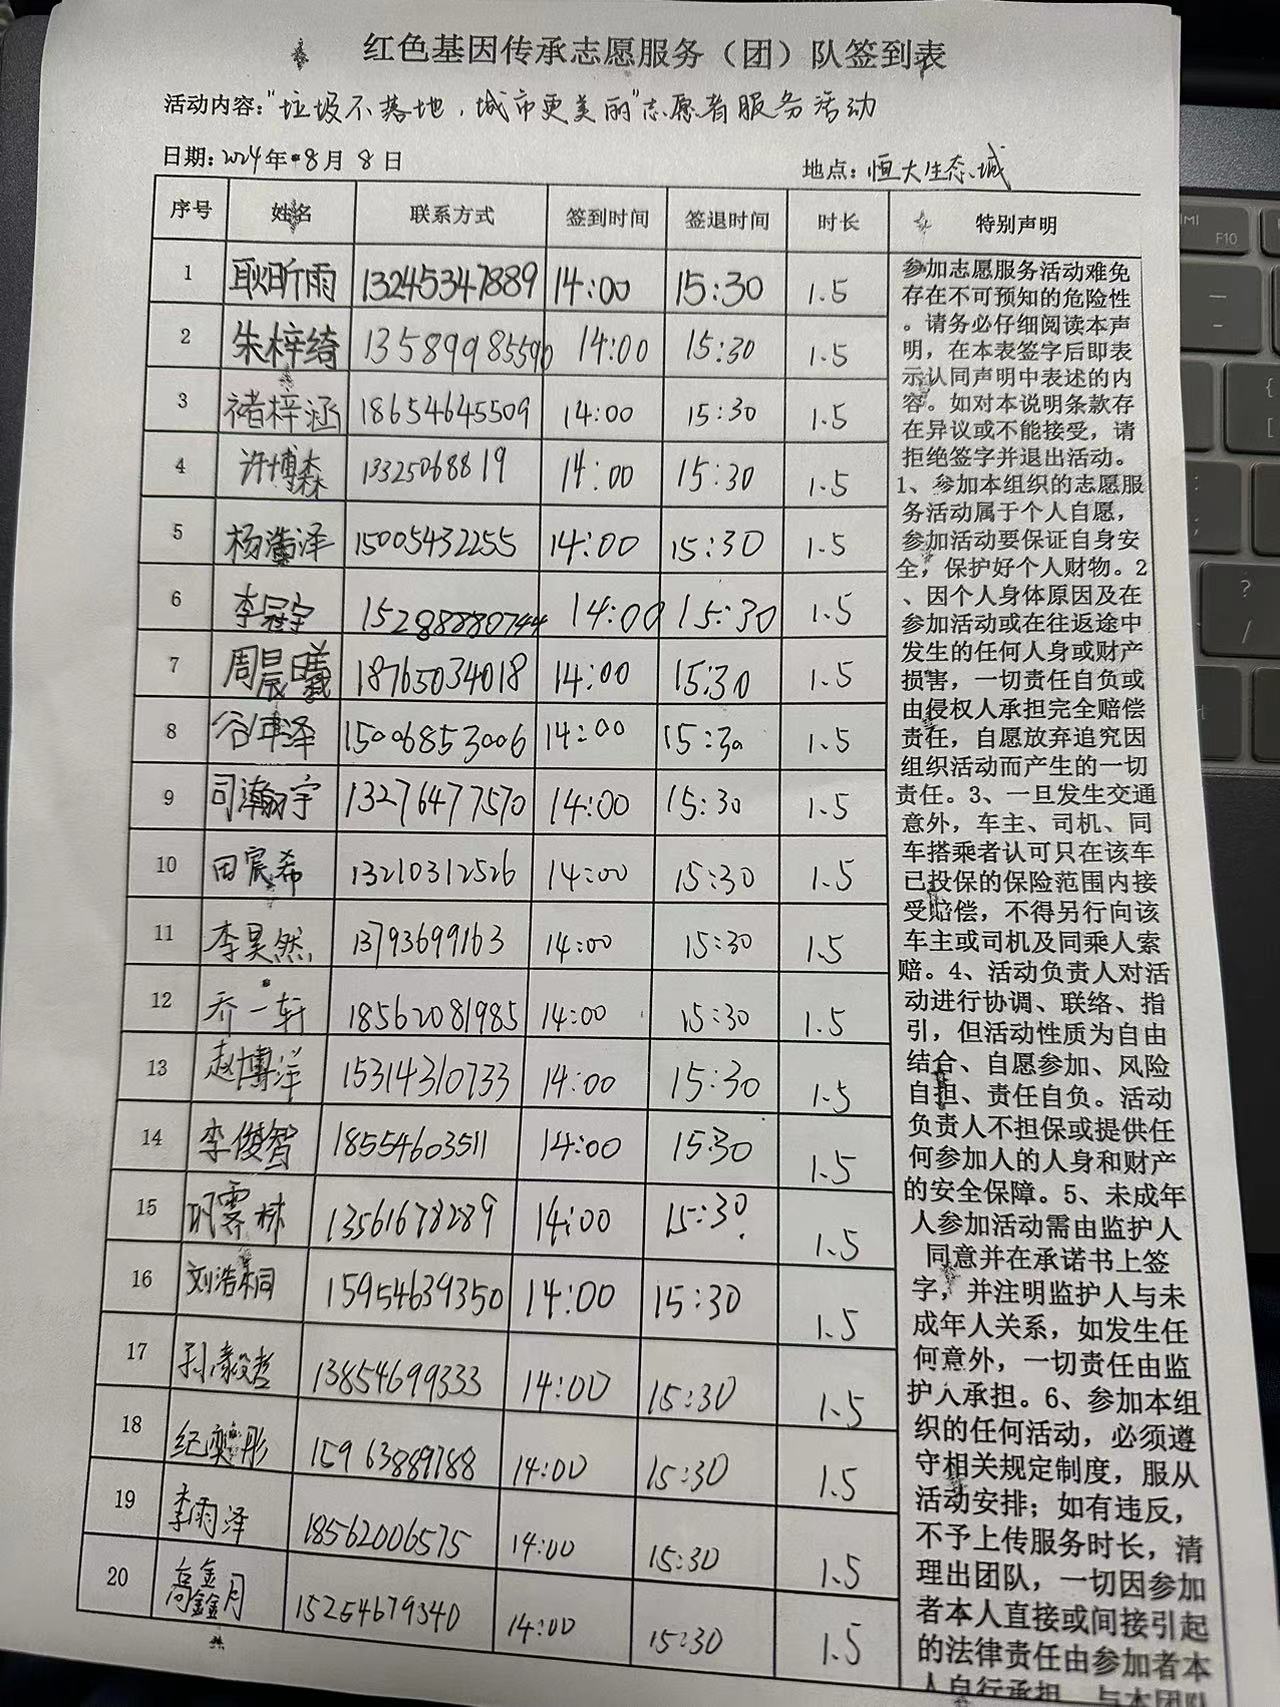 红色基因传承志愿服务（团）队签到表
活动内容："垃圾不落地，城市更美丽"志愿者服务活动
日期：2024年8月8日 地点：恒大生态城
序号 姓名 联系方式 签到时间 签退时间 时长 特别声明
1 耿昕雨 13245347889 14:00 15:30 1.5
2 朱梓绮 13589985590 14:00 15:30 1.5
3 褚梓涵 18654645509 14:00 15:30 1.5
4 许博森 13325068819 14:00 15:30 1.5
5 杨浩泽 15005432255 14:00 15:30 1.5
6 李冠宇 15288880744 14:00 15:30 1.5
7 周晨曦 18765034018 14:00 15:30 1.5
8 谷泽 15006853006 14:00 15:30 1.5
9 司瀚宇 13276477570 14:00 15:30 1.5
10 田宸希 13210312526 14:00 15:30 1.5
11 李昊然 13793699163 14:00 15:30 1.5
12 乔一轩 18562081985 14:00 15:30 1.5
13 赵博洋 15314310733 14:00 15:30 1.5
14 李俊智 18554603511 14:00 15:30 1.5
15 巩霁林 13561678289 14:00 15:30 1.5
16 刘浩桐 15954639350 14:00 15:30 1.5
17 孙毅哲 13854699333 14:00 15:30 1.5
18 纪奕彤 15963889788 14:00 15:30 1.5
19 李雨泽 18562006575 14:00 15:30 1.5
20 高鑫月 15254679340 14:00 15:30 1.5
参加志愿服务活动难免
存在不可预知的危险性
。请务必仔细阅读本声
明，在本表签字后即表
示认同声明中表述的内
容。如对本说明条款存
在异议或不能接受，请
拒绝签字并退出活动。
1、参加本组织的志愿服
务活动属于个人自愿，
参加活动要保证自身安
全，保护好个人财物。2
、因个人身体原因及在
参加活动或在往返途中
发生的任何人身或财产
损害，一切责任自负或
由侵权人承担完全赔偿
责任，自愿放弃追究因
组织活动而产生的一切
责任。3、一旦发生交通
意外，车主、司机、同
车搭乘者认可只在该车
已投保的保险范围内接
受赔偿，不得另行向该
车主或司机及同乘人索
赔。4、活动负责人对活
动进行协调、联络、指
引，但活动性质为自由
结合、自愿参加、风险
自担、责任自负。活动
负责人不担保或提供任
何参加人的人身和财产
的安全保障。5、未成年
人参加活动需由监护人
同意并在承诺书上签
字，并注明监护人与未
成年人关系，如发生任
何意外，一切责任由监
护人承担。6、参加本组
织的任何活动，必须遵
守相关规定制度，服从
活动安排；如有违反，
不予上传服务时长，清
理出团队，一切因参加
者本人直接或间接引起
的法律责任由参加者本
人自行承担，与本团队
F10
?
/
{
[